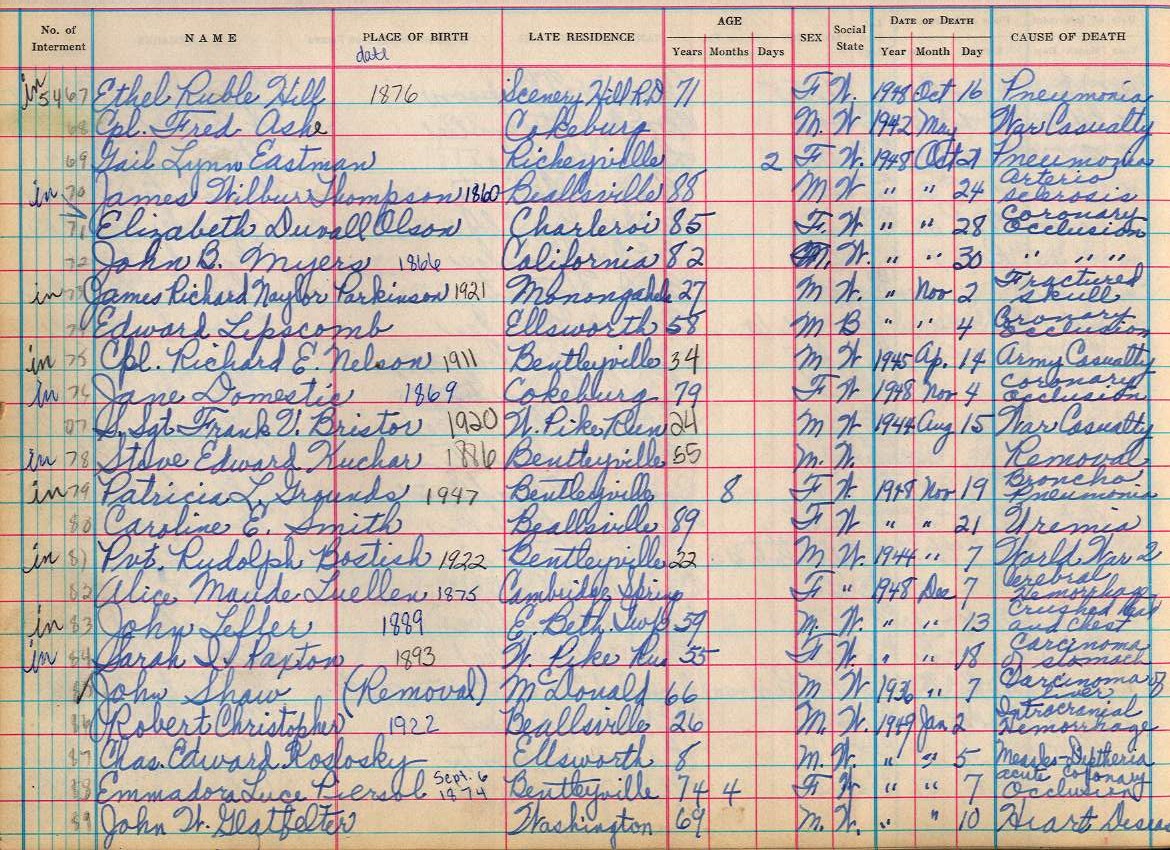 No. of Interment NAME PLACE OF BIRTH LATE RESIDENCE AGE SEX Social State DATE OF DEATH CAUSE OF DEATH
date Years Months Days Year Month Day
in 5467 Ethel Ruble Hill 1876 Scenery Hill R.D 71 F W. 1948 Oct 16 Pneumonia
68 Cpl. Fred Ashe Cokeburg M. W. 1942 May War Casualty
69 Gail Lynn Eastman Richeyville 2 F W. 1948 Oct 21 Pneumonia
in 70 James Wilbur Thompson 1860 Beallsville 88 M W " " 24 Arterio sclerosis
71 Elizabeth Duvall Olson Charleroi 85 F. W " " 28 Coronary Occlusion
72 John B. Myers 1866 California 82 M. W. " " 30 " " "
in 73 James Richard Naylor Parkinson 1921 Monongahela 27 M W. " Nov 2 Fractured skull
74 Edward Lipscomb Ellsworth 58 M B " " 4 Coronary Occlusion
in 75 Cpl. Richard E. Nelson 1911 Bentleyville 34 M W 1945 Ap. 14 Army Casualty
in 76 Jane Domestic 1869 Cokeburg 79 F W 1948 Nov 4 Coronary occlusion
S. Sgt Frank V. Bristor 1920 W. Pike Run 24 M W 1944 Aug 15 War Casualty
in 78 Steve Edward Kuchar Bentleyville 55 M. W. Removal
in 79 Patricia L. Grounds 1947 Bentleyville 8 F W. 1948 Nov 19 Broncho Pneumonia
80 Caroline E. Smith Beallsville 89 F W " " 21 Uremia
in 81 Pvt. Rudolph Bostich 1922 Bentleyville 22 M W. 1944 " 7 World War 2
82 Alice Maude Luellen 1875 Cambridge Spring F " 1948 Dec 7 Cerebral Hemorrhage
in 83 John Lefler 1889 E. Beth. Twp 59 M. W. " " 13 Crushed head and chest
in 84 Sarah I. Paxton 1893 W. Pike Run 55 F W. " " 18 Carcinoma of stomach
85 John Shaw (Removal) McDonald 66 M W 1936 " 7 Carcinoma of liver
86 Robert Christopher 1922 Beallsville 26 M. W. 1949 Jan 2 Intracranial Hemorrhage
87 Chas. Edward Koslosky Ellsworth 8 M. W. " " 5 Measles-Diptheria
88 Emmadora Luce Piersol Sept. 6 1874 Bentleyville 74 4 F W " " 7 acute coronary Occlusion
89 John W. Glatfelter Washington 69 M. W. " " 10 Heart Diseas